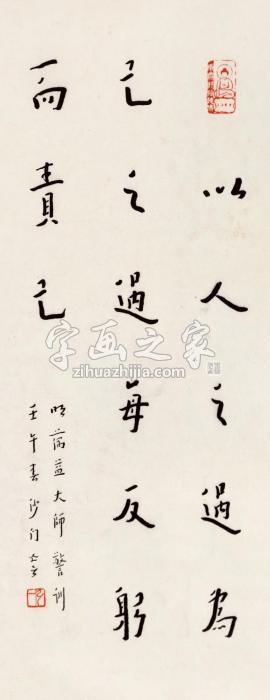 以人之過為
己之過每反躬
而責己
明蕅益大師警訓
壬午春沙門
字画之家
zihuazhijia.com